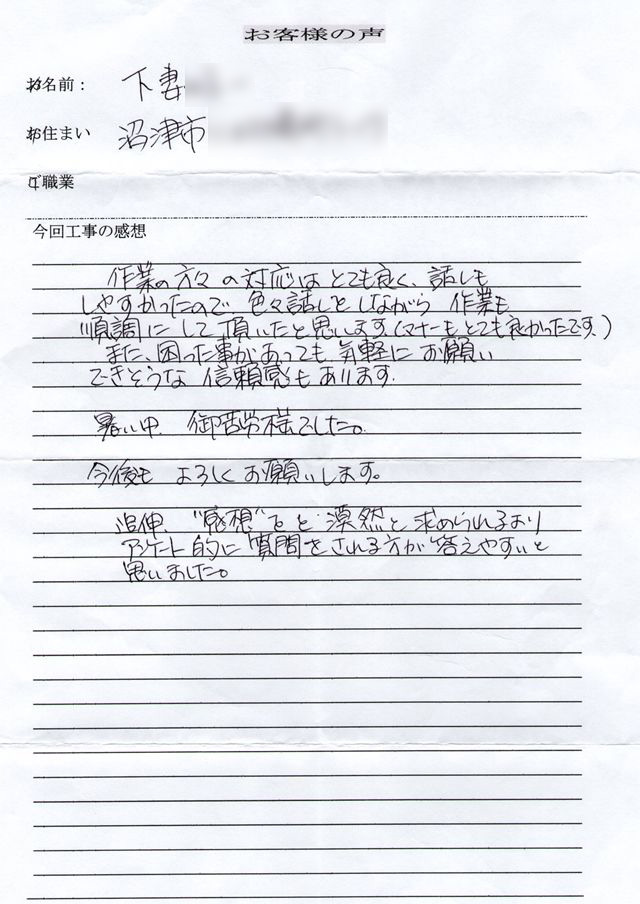 お客様の声
お名前： 下妻
お住まい 沼津市
ご職業
今回工事の感想
作業の方々の対応はとても良く、話しも
しやすかったので色々話しをしながら作業も
順調にして頂いたと思います(マナーもとても良かったです。)
また、困った事があっても気軽にお願い
できそうな信頼感もあります。
暑い中、御苦労様でした。
今後もよろしくお願いします。
追伸、"感想"をと漠然と求められるより
アンケート的に質問をされる方が答えやすいと
思いました。